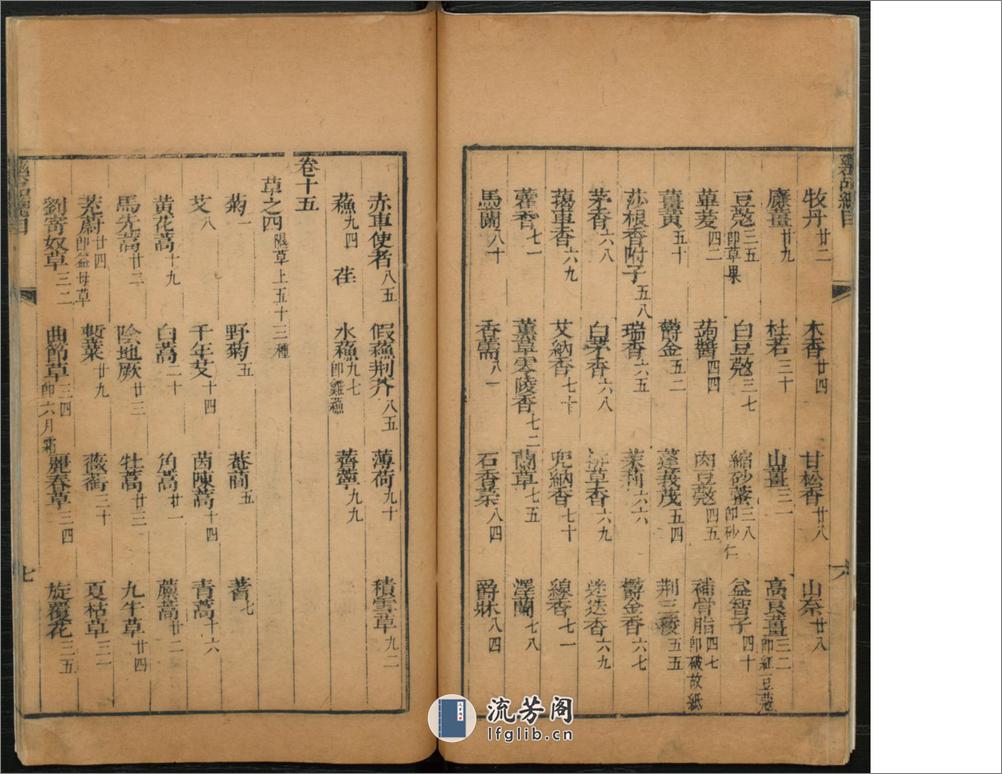 牡丹廿二 木香廿四 甘松香廿八 山柰廿八
廉薑廿九 杜若三十 山薑三一 高良薑三二即紅豆蔻
豆蔻三五即草果 白豆蔻三七 縮砂蔤三八即砂仁 益智子四十
蓽茇四二 蒟醬四四 肉豆蔻四五 補骨脂四七即破故紙
薑黃五十 鬱金五二 蓬莪茂五四 荆三稜五五
莎根香附子五八 瑞香六五 茉莉六六 鬱金香六六
茅香六八 白茅香六八 排草香六九 迷迭香六九
藒車香六九 艾納香七十 兜納香七十 線香七一
藿香七一 薰草零陵香七二 蘭草七五 澤蘭七八
馬蘭八十 香薷八一 石香葇八四 爵牀八四
六
赤車使者八五 假蘇荆芥八五 薄荷九十 積雪草九二
蘇九四 荏 水蘇九七即雞蘇 薺薴九九
卷十五
草之四隰草上五十三種
菊一 野菊五 菴䕡五 蓍七
艾八 千年艾十四 茵陳蒿十四 青蒿十六
黃花蒿十九 白蒿二十 角蒿廿一 䕲蒿廿二
馬先蒿廿二 陰地厥廿三 牡蒿廿三 九牛草廿四
茺蔚廿四即益母草 蔪菜廿九 薇銜三十 夏枯草三一
劉寄奴草三二 曲節草三四即六月霜 麗春草三四 旋覆花三五
七
流芳阁
lfglib.cn